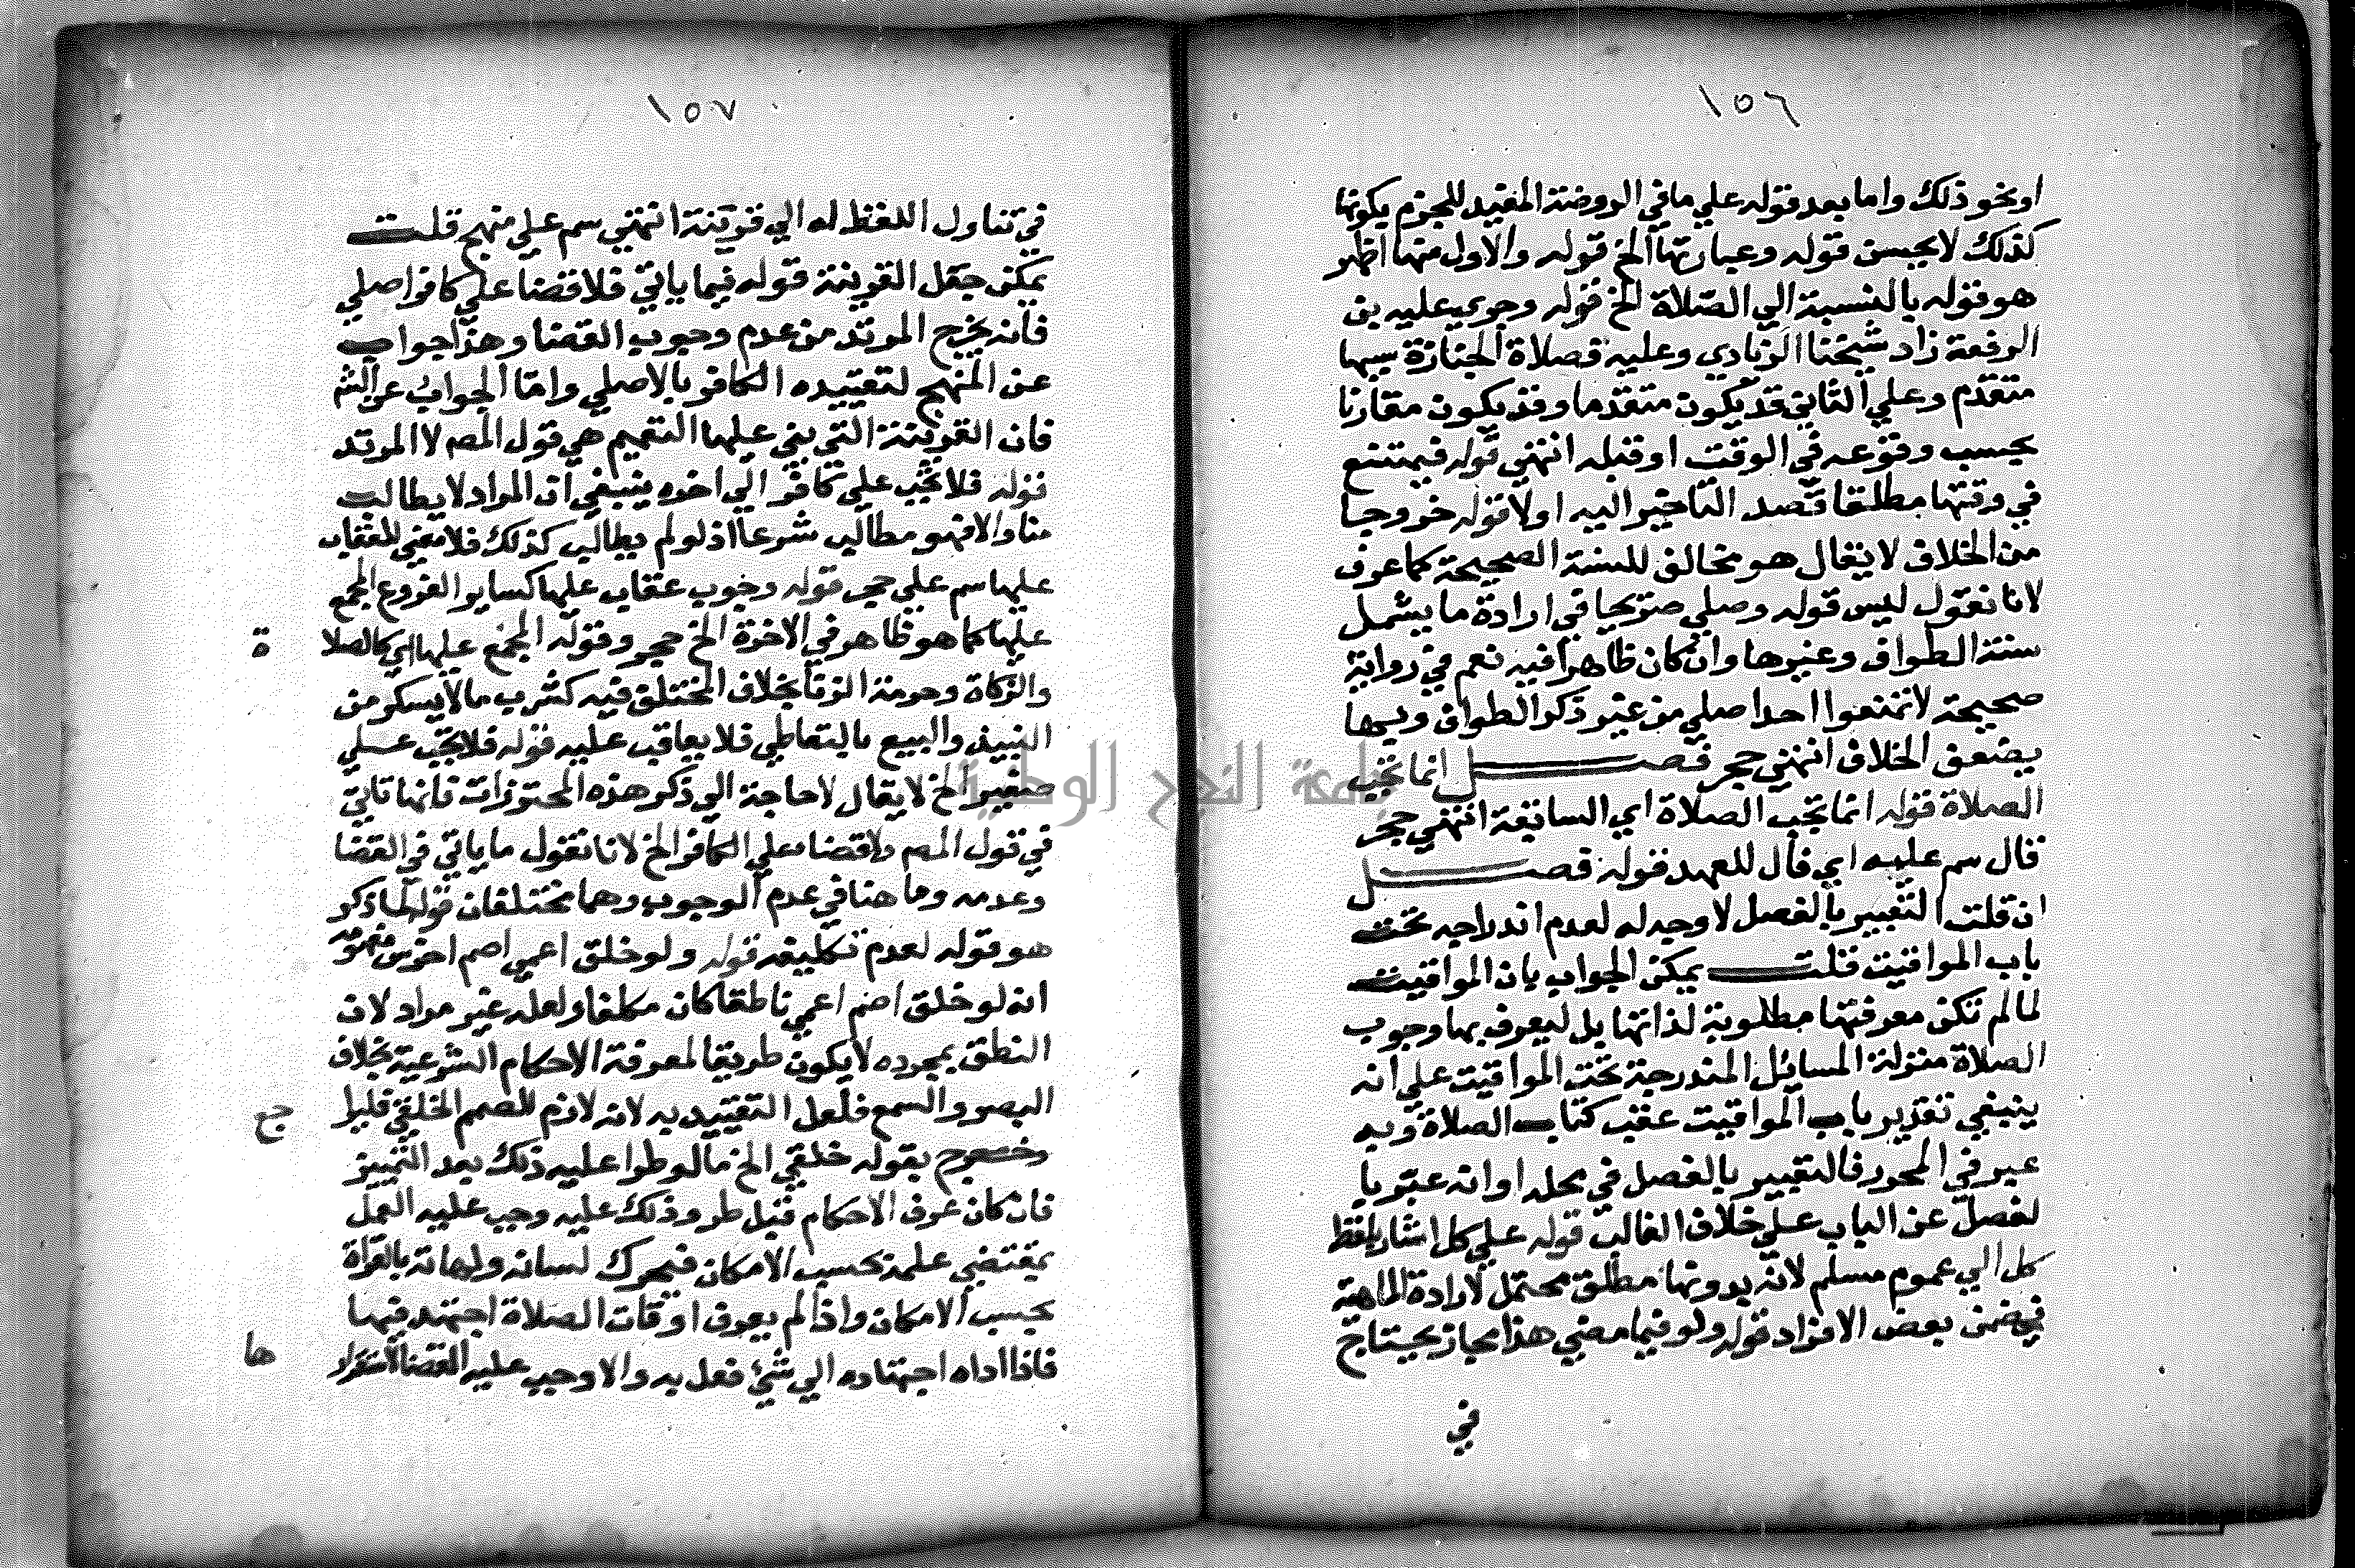 ١٥٦
او نحو ذلك واما بعد قوله علي ما في الروضة المفيد للجزم بكونها
كذلك لا يحسن قوله وعبارتها الخ قوله والاول منهما اظهر
هو قوله بالنسبة الي الصلاة الخ قوله وجري عليه بن
الرفعة زاد شيخنا الزيادي وعليه فصلاة الجنازة سببها
متقدم وعلي الثاني قد يكون متقدما وقد يكون مقارنا
بحسب وقوعه في الوقت او قبله انتهي قوله فيمتنع
في وقتها مطلقا قصد التاخير اليه اولا قوله خروجا
من الخلاف لا يقال هو مخالف للسنة الصحيحة كما عرف
لانا نقول ليس قوله وصلي صريحا في ارادة ما يشمل
سنة الطواف وغيرها وان كان ظاهرا فيه نعم في رواية
صحيحة لا تمنعوا احدا صلي من غير ذكر الطواف وبها
يضعف الخلاف انتهي حجر فصل انما تجب
الصلاة قوله انما تجب الصلاة اي السابقة انتهي حجر
قال سم عليه اي فال للعهد قوله فصل
ان قلت التعبير بالفصل لا وجه له لعدم اندراجه تحت
باب المواقيت قلت يمكن الجواب بان المواقيت
لما لم تكن معرفتها مطلوبة لذاتها بل ليعرف بها وجوب
الصلاة منزلة المسائل المندرجة تحت المواقيت علي انه
ينبغي تقدير باب المواقيت عقب كتاب الصلاة وبه
عبر في المحرر فالتعبير بالفصل في محله او انه عبر با
لفصل عن الباب علي خلاف الغالب قوله علي كل اشار بلفظ
كل الي عموم مسلم لانه بدونها مطلق محتمل لارادة الماهية
في ضمن بعض الافراد قوله ولو فيما مضي هذا مجاز يحتاج
في
١٥٧
في تناول اللفظ له الي قرينة انتهي سم علي منهج قلت
يمكن جعل القرينة قوله فيما ياتي فلا قضا علي كافر اصلي
فانه يخرج المرتد من عدم وجوب القضا وهذا جواب
عن المنهج لتقييده الكافر بالاصلي واما الجواب عن الش
فان القرينة التي بني عليها التعميم هي قول المص لا المرتد
قوله فلا تجب علي كافر الي اخره ينبغي ان المراد لا يطالب
منا والا فهو مطالب شرعا اذ لو لم يطالب كذلك فلا معني للعقاب
عليها سم علي حجر قوله وجوب عقاب عليها كساير الفروع المجمع
عليها كما هو ظاهر في الاخرة الخ حجر وقوله المجمع عليها اي كالصلا
ة
والزكاة وحرمة الزنا بخلاف المختلف فيه كشرب ما لا يسكر من
النبيذ والبيع بالتعاطي فلا يعاقب عليه قوله فلا تجب علي
صغير الخ لا يقال لا حاجة الي ذكر هذه المحترزات فانها تاتي
في قول المص ولا قضاء علي الكافر الخ لانا نقول ما ياتي في القضا
وعدمه وما هنا في عدم الوجوب وهما مختلفان قوله لما ذكر
هو قوله لعدم تكليفه قوله ولو خلق اعمي اصم اخرس مفهومه
انه لو خلق اصم اعمي ناطقا كان مكلفا ولعله غير مراد لان
النطق بمجرده لا يكون طريقا لمعرفة الاحكام الشرعية بخلاف
البصر والسمع فلعل التقييد به لانه لازم للصمم الخلقي قليل
جع
بقوله خلقي الخ ما لو طرا عليه ذلك بعد التمييز
فان كان عرف الاحكام قبل طرو ذلك عليه وجب عليه العمل
بمقتضي علمه بحسب الامكان فيحرك لسانه ولهاته بالقراة
بحسب الامكان واذا لم يعرف اوقات الصلاة اجتهد فيها
فاذا اداه اجتهاده الي شئ فعل به والا وجب عليه القضا لاستقرار
ها
جامعة النجاح الوطنية